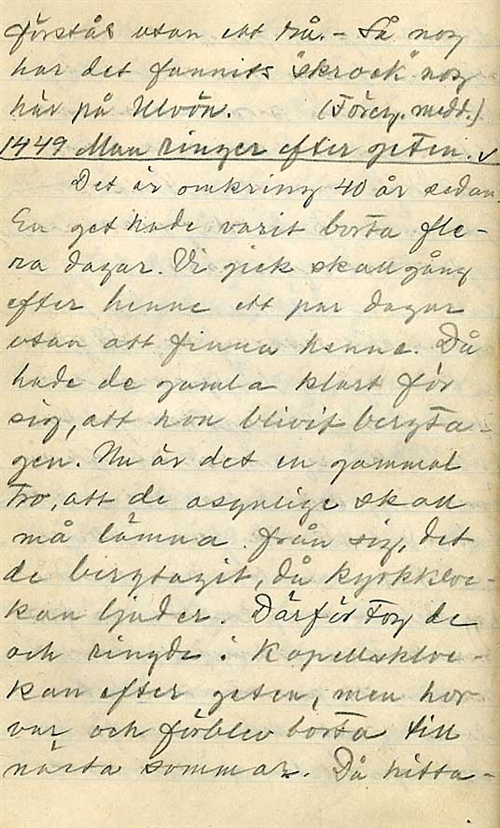 förstås utan ett rå. - Så nog
har det funnits "skrock" nog
här på Ulvön. (Föreg. medd.)
1449 Man ringer efter geten. ✓
Det är omkring 40 år sedan
En get hade varit borta fle-
ra dagar. Vi gick skallgång
efter henne ett par dagar
utan att finna henne. Då
hade de gamla klart för
sig, att hon blivit bergta-
gen. Nu är det en gammal
tro, att de osynlige skall
må lämna från sig, det
de bergtagit, då kyrkkloc-
kan ljuder. Därför tog de
och ringde i kapellskloc-
kan efter geten, men hon
var och förblev borta till
nästa sommar. Då hitta-